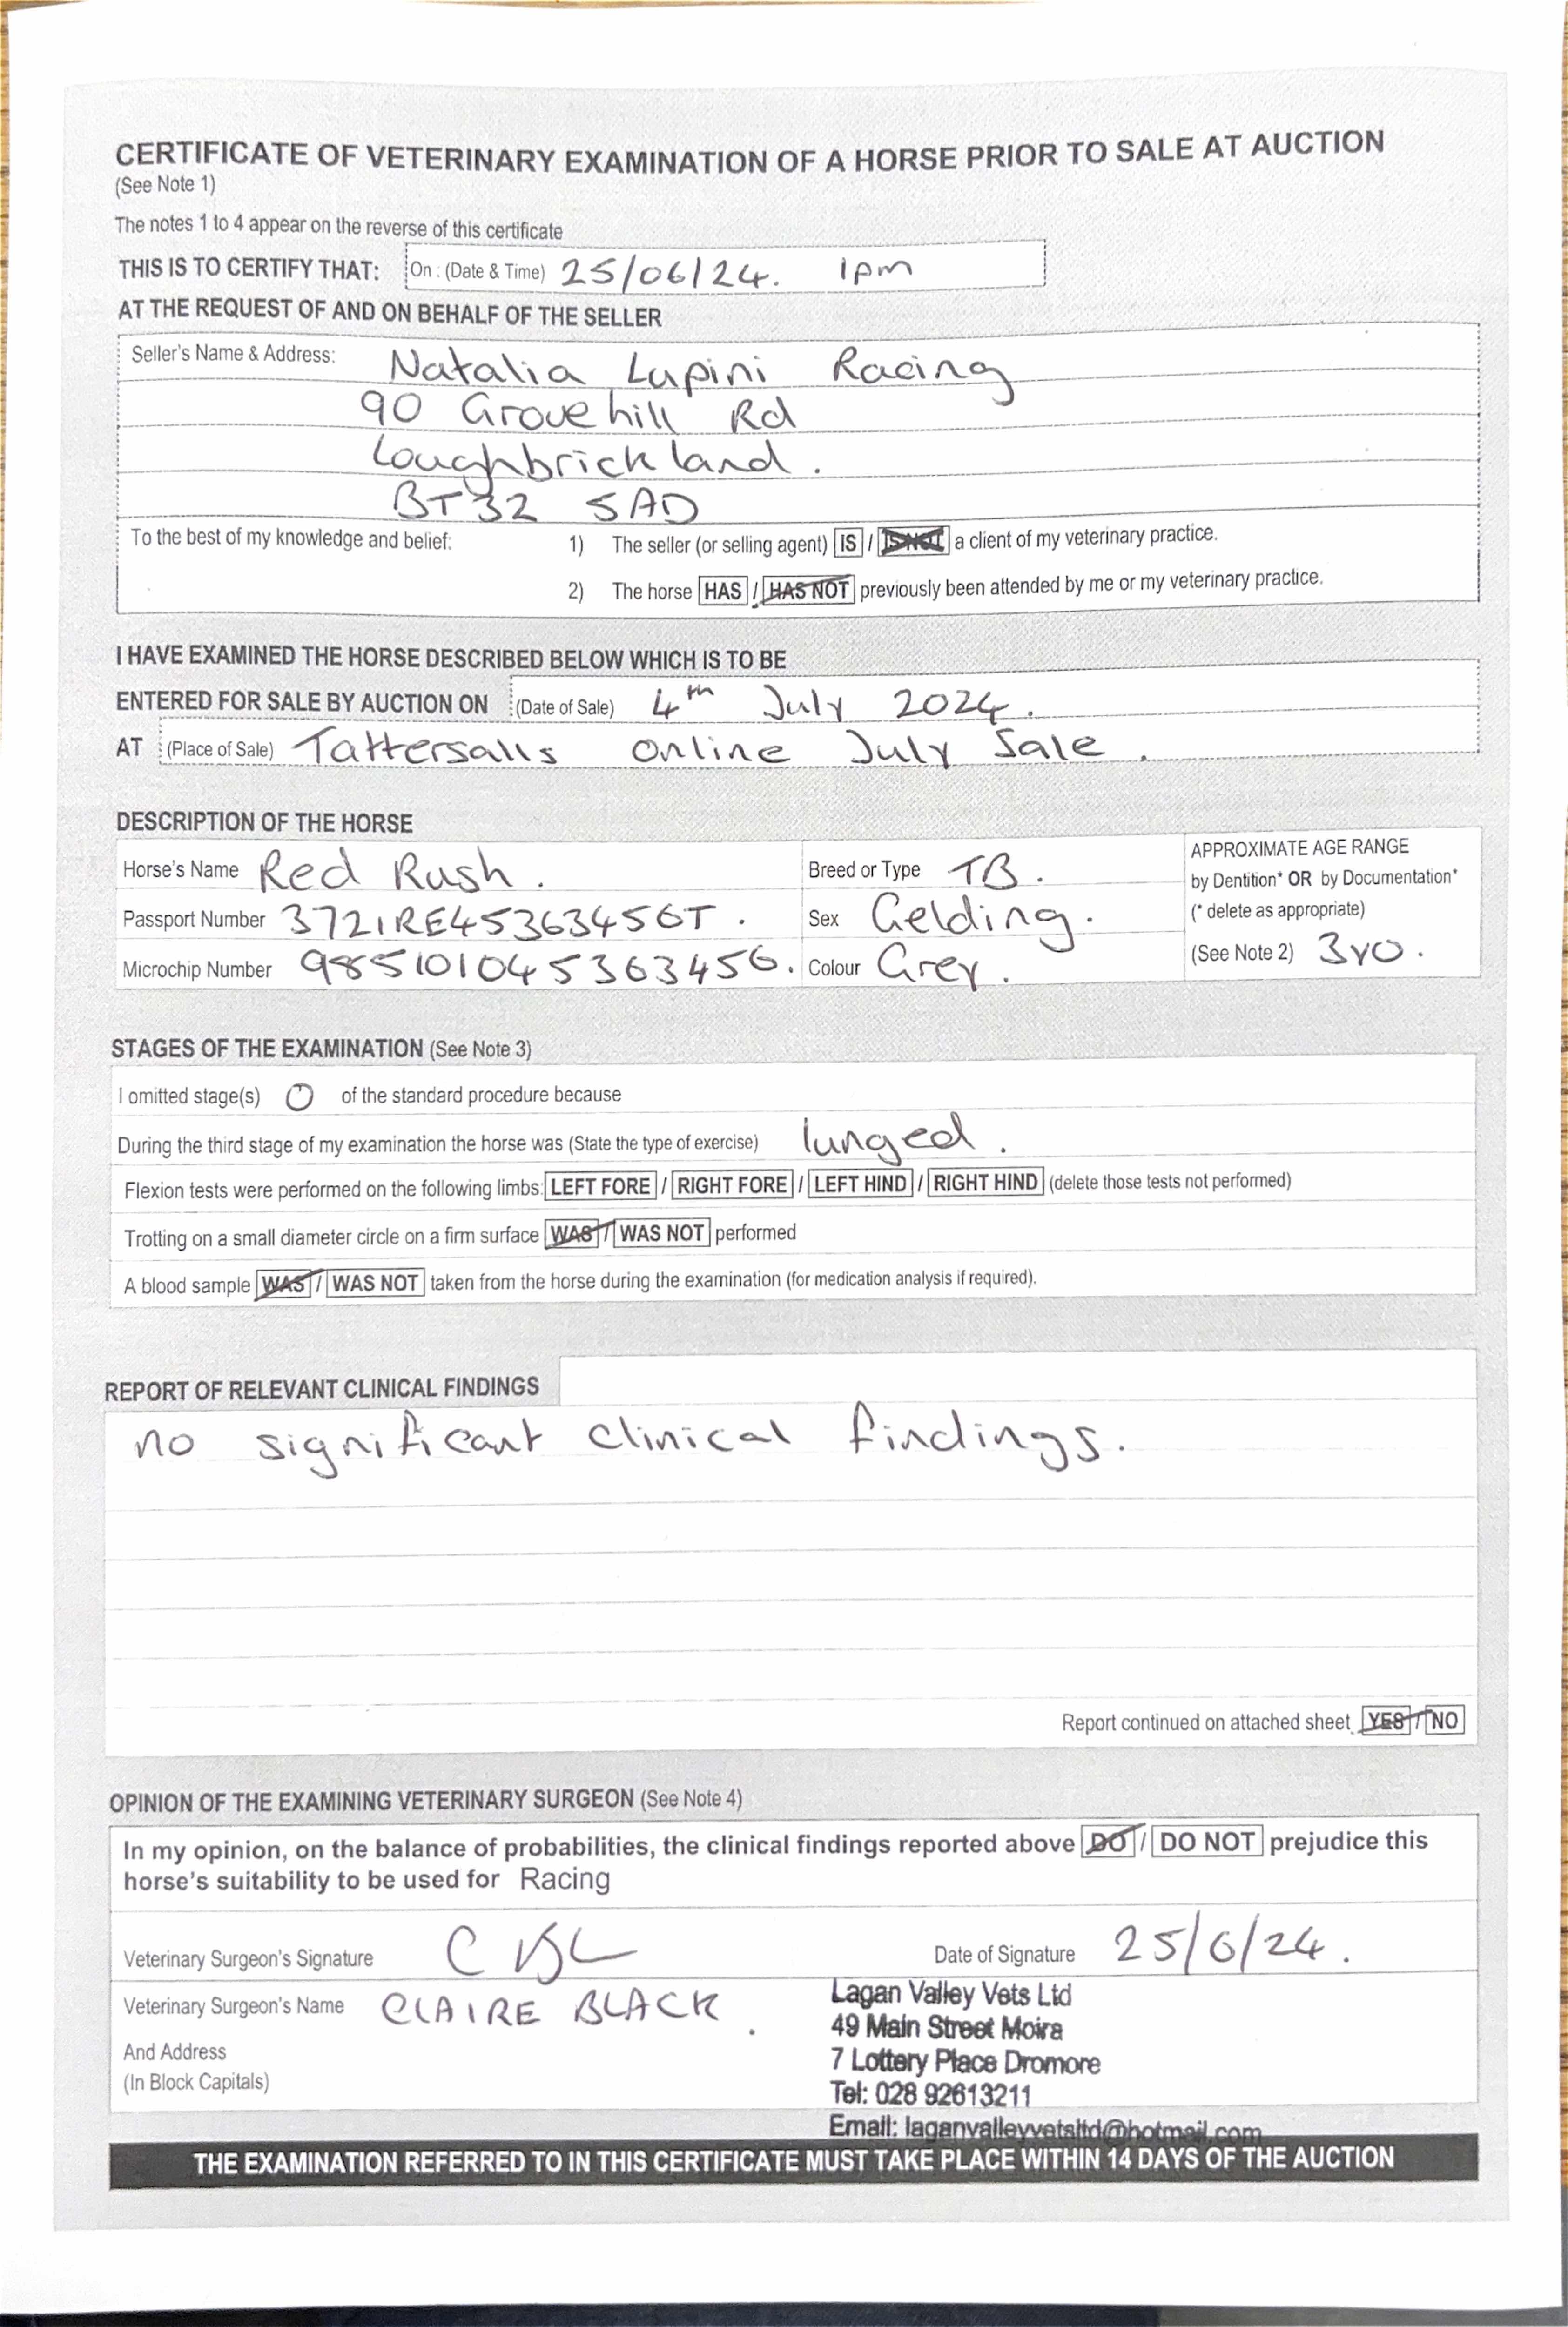 CERTIFICATE OF VETERINARY EXAMINATION OF A HORSE PRIOR TO SALE AT AUCTION
(See Note 1)
The notes 1 to 4 appear on the reverse of this certificate
THIS IS TO CERTIFY THAT: On : (Date & Time) 25/06/24. 1pm
AT THE REQUEST OF AND ON BEHALF OF THE SELLER
Seller's Name & Address: Natalia Lupini Racing
90 Grovehill Rd
Loughbrickland.
BT32 5AD
To the best of my knowledge and belief: 1) The seller (or selling agent) IS / IS NOT a client of my veterinary practice.
2) The horse HAS / HAS NOT previously been attended by me or my veterinary practice.
I HAVE EXAMINED THE HORSE DESCRIBED BELOW WHICH IS TO BE
ENTERED FOR SALE BY AUCTION ON (Date of Sale) 4th July 2024.
AT (Place of Sale) Tattersalls online July Sale.
DESCRIPTION OF THE HORSE
Horse's Name Red Rush. Breed or Type TB. APPROXIMATE AGE RANGE
by Dentition* OR by Documentation*
Passport Number 372IRE45363456T. Sex Gelding. (* delete as appropriate)
Microchip Number 985101045363456. Colour Grey. (See Note 2) 3yo.
STAGES OF THE EXAMINATION (See Note 3)
I omitted stage(s) 0 of the standard procedure because
During the third stage of my examination the horse was (State the type of exercise) lunged.
Flexion tests were performed on the following limbs: LEFT FORE / RIGHT FORE / LEFT HIND / RIGHT HIND (delete those tests not performed)
Trotting on a small diameter circle on a firm surface WAS / WAS NOT performed
A blood sample WAS / WAS NOT taken from the horse during the examination (for medication analysis if required).
REPORT OF RELEVANT CLINICAL FINDINGS
no significant clinical findings.
Report continued on attached sheet YES / NO
OPINION OF THE EXAMINING VETERINARY SURGEON (See Note 4)
In my opinion, on the balance of probabilities, the clinical findings reported above DO / DO NOT prejudice this
horse's suitability to be used for Racing
Veterinary Surgeon's Signature Date of Signature 25/6/24.
Veterinary Surgeon's Name CLAIRE BLACK.
And Address
(In Block Capitals)
Lagan Valley Vets Ltd
49 Main Street Moira
7 Lottery Place Dromore
Tel: 028 92613211
Email: laganvalleyvetsltd@hotmail.com
THE EXAMINATION REFERRED TO IN THIS CERTIFICATE MUST TAKE PLACE WITHIN 14 DAYS OF THE AUCTION